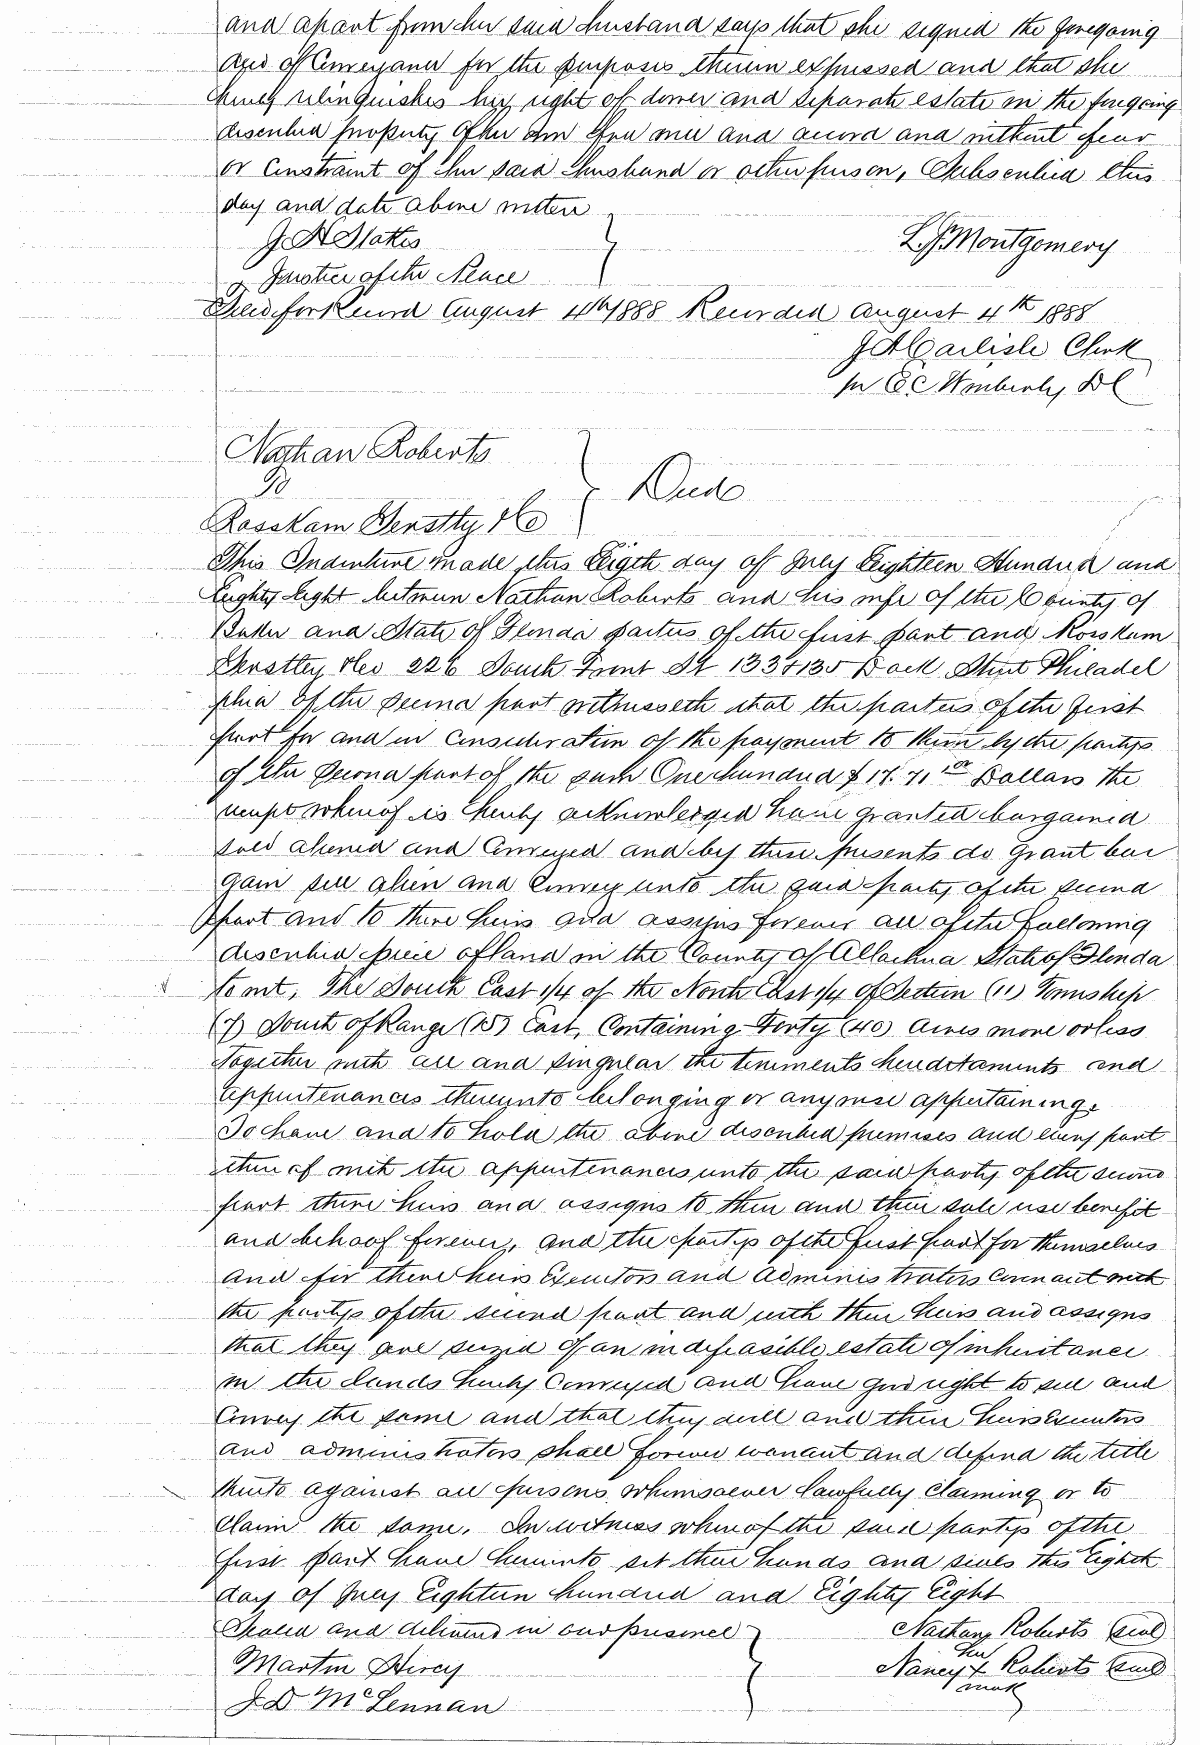 and apart from her said husband says that she signed the foregoing
deed of Conveyance for the purposes therein expressed and that she
hereby relinquishes her right of dower and separate estate in the foregoing
described property of her own free will and accord and without fear
or Constraint of her said husband or other person, Subscribed this
day and date above written
J. H. Stokes
L. J. Montgomery
Justice of the Peace
Filed for Record August 4th 1888 Recorded August 4th 1888
J A Carlisle Clerk
per E. C. Wimberly, DC
Nathan Roberts
To
Deed
Rosskam Gerstley & Co
This Indenture made this Eigth day of July Eighteen Hundred and
Eighty Eight between Nathan Roberts and his wife of the County of
Baker and State of Florida parties of the first part and Rosskam
Gerstley & Co 226 South Front St 133 & 135 Dock Street Philadel
phia of the Second part witnesseth that the parties of the first
part for and in Consideration of the payment to them by the partys
of the Second part of the sum One hundred & 17. 71 Dollars the
receipt whereof is hereby acknowledged have granted bargained
sold aliened and Conveyed and by these presents do grant bar
gain sell alien and Convey unto the said party of the second
part and to there heirs and assigns forever all of the following
described piece of land in the County of Allachua State of Florida
to wit, The South East 1/4 of the North East 1/4 of Section (11) Township
(7) South of Range (15) East, Containing Forty (40) Acres more or less
together with all and singular the teniments heredetaments and
appurtenances thereunto belonging or anywise appertaining.
To have and to hold the above described premises and every part
thereof with the appurtenances unto the said party of the second
part there heirs and assigns to their and their sole use benefit
and behoof forever, and the partys of the first part for themselves
and for there heirs Executors and administrators Covenant with
the partys of the second part and with their heirs and assigns
that they are seized of an indefeasible estate of inheritance
in the lands hereby Conveyed and have good right to sell and
Convey the same and that they will and their heirs Executors
and administrators shall forever warrant and defend the title
thereto against all persons whomsoever lawfully claiming or to
Claim the same. In witness whereof the said partys of the
first part have hereunto set their hands and seals this Eighth
day of July Eighteen hundred and Eighty Eight
Sealed and delivered in our presence
Nathan Roberts (seal)
Martin Hircy
her
Nancy X Roberts (seal)
mark
J. D. McLennan